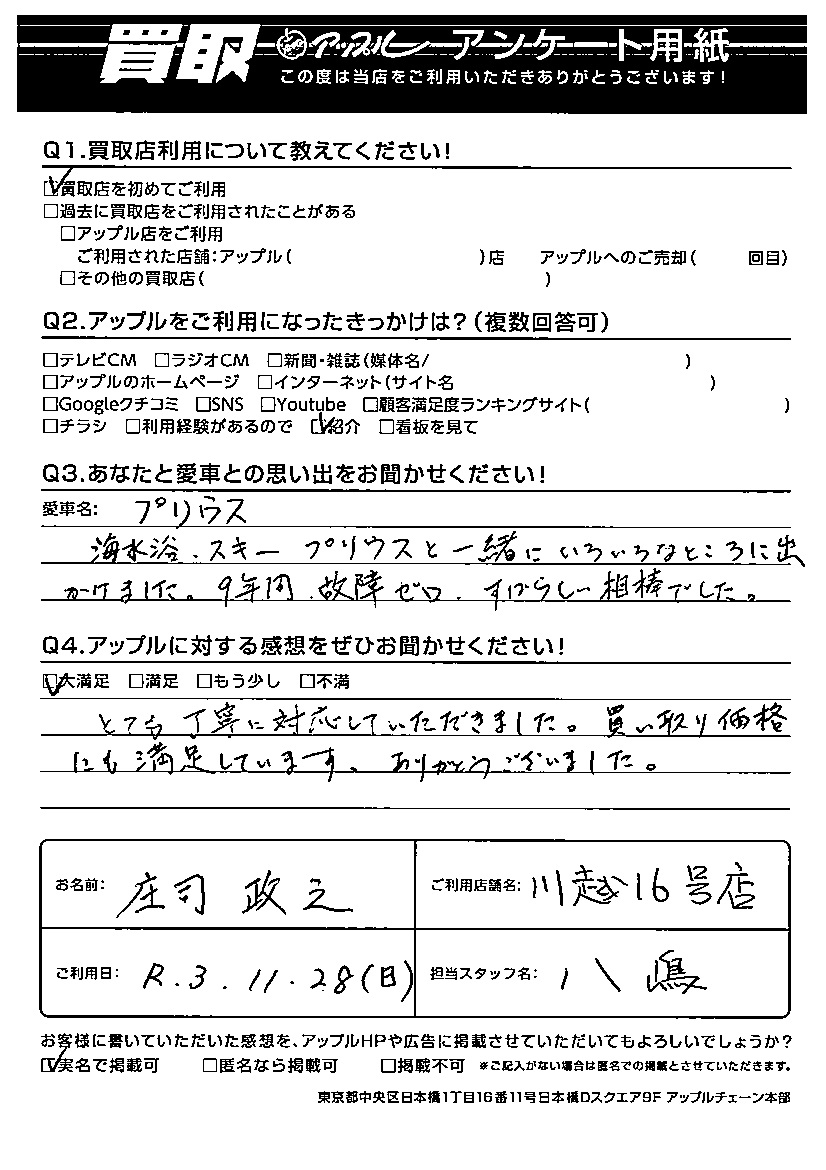 買取 アップル アンケート用紙
この度は当店をご利用いただきありがとうございます!
Q1.買取店利用について教えてください!
☑買取店を初めてご利用
□過去に買取店をご利用されたことがある
□アップル店をご利用
ご利用された店舗:アップル( )店 アップルへのご売却( 回目)
□その他の買取店( )
Q2.アップルをご利用になったきっかけは?(複数回答可)
□テレビCM □ラジオCM □新聞・雑誌(媒体名/ )
□アップルのホームページ □インターネット(サイト名 )
□Googleクチコミ □SNS □Youtube □顧客満足度ランキングサイト( )
□チラシ □利用経験があるので ☑紹介 □看板を見て
Q3.あなたと愛車との思い出をお聞かせください!
愛車名: プリウス
海水浴、スキー プリウスと一緒にいろいろなところに出
かけました。9年間、故障ゼロ、すばらしい相棒でした。
Q4.アップルに対する感想をぜひお聞かせください!
☑大満足 □満足 □もう少し □不満
とても丁寧に対応していただきました。買い取り価格
にも満足しています。ありがとうございました。
お名前: 庄司 政之 ご利用店舗名: 川越16号店
ご利用日: R.3.11.28(日) 担当スタッフ名: 八嶋
お客様に書いていただいた感想を、アップルHPや広告に掲載させていただいてもよろしいでしょうか?
☑実名で掲載可 □匿名なら掲載可 □掲載不可 ※ご記入がない場合は匿名での掲載とさせていただきます。
東京都中央区日本橋1丁目16番11号日本橋Dスクエア9F アップルチェーン本部